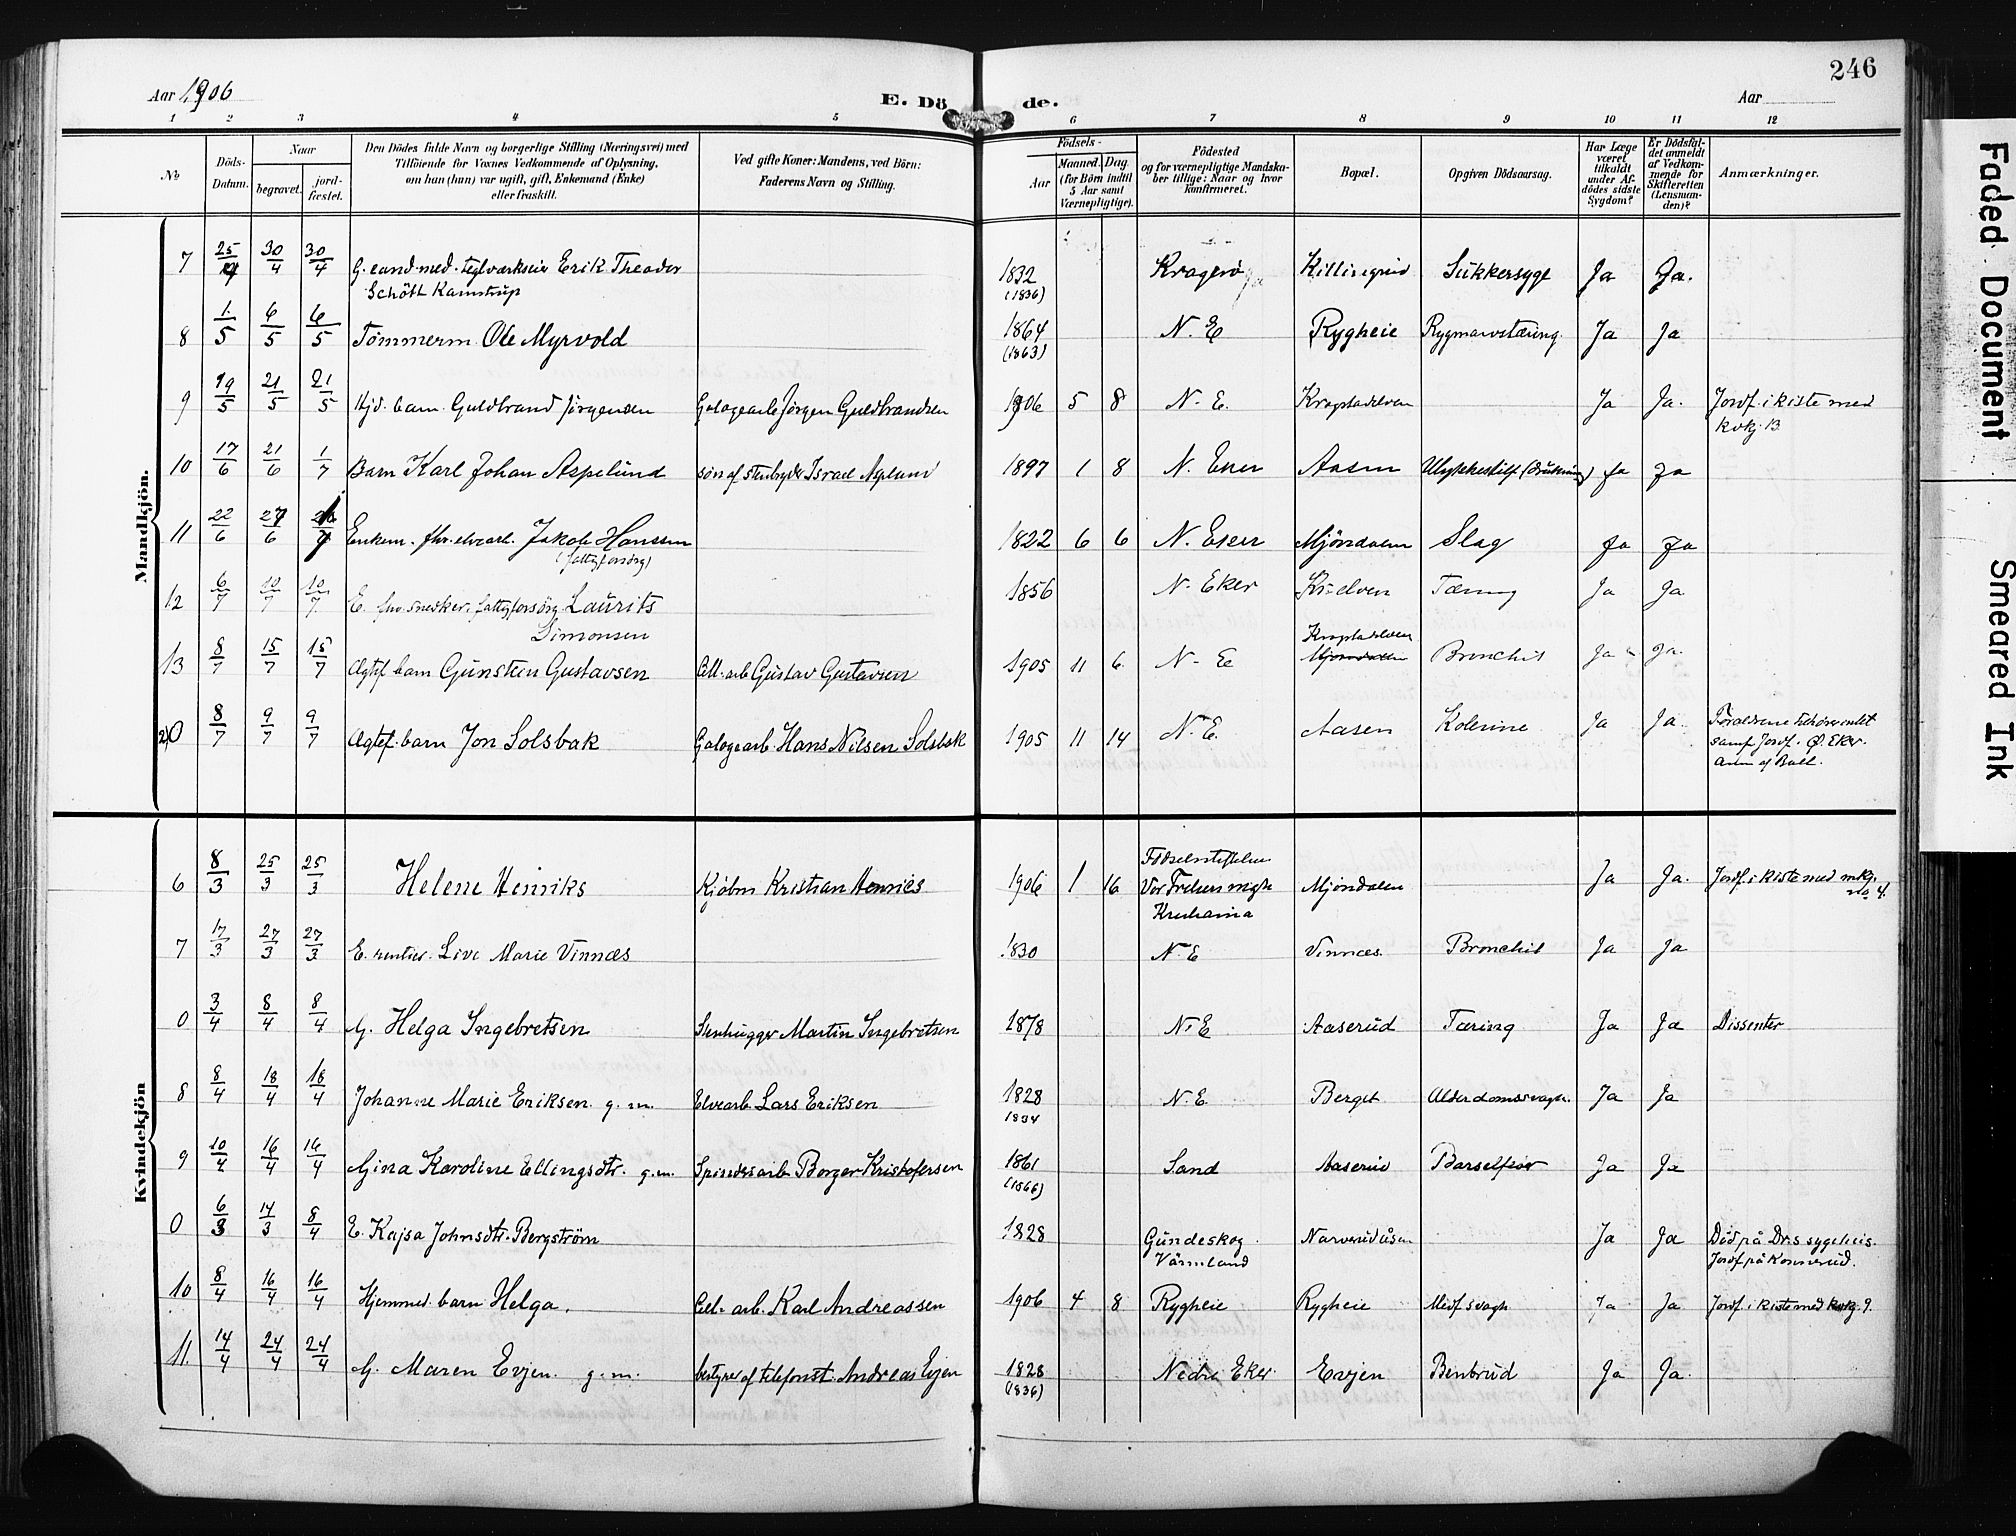 246
Aar 1906
E. Dö de.
Aar
1 2 3 4 5 6 7 8 9 10 11 12
No
Döds-Datum.
Naar
begravet.
jord-fæstet.
Den Dödes fulde Navn og borgerlige Stilling (Næringsvei) med
Tilföiende for Voxnes Vedkommende af Oplysning,
om han (hun) var ugift, gift, Enkemand (Enke)
eller fraskilt.
Ved gifte Koner: Mandens, ved Börn:
Faderens Navn og Stilling.
Födsels-
Aar
Maaned. Dag.
(for Börn indtil
5 Aar samt
Værnepligtige).
Födested
og for værnepligtige Mandska-
ber tillige: Naar og hvor
konfirmeret.
Bopæl.
Opgiven Dödsaarsag.
Har Læge
været
tilkaldt
under Af-
dödes sidste
Sygdom?
Er Dödsfal-
det anmeldt
af Vedkom-
mende for
Skifteretten
(Lensman-
den)?
Anmærkninger.
Mandkjön.
7 25/4 30/4 30/4 G. cand. med. teglværkseier Erik Theodor 1832 Kragerø Killingrud Sukkersyge Ja Ja.
Schött Kamstrup (1836)
8 1/5 6/5 6/5 Tömmerm. Ole Myrvold 1864 N. E Rygheie Rygmarvstæring. Ja Ja
(1863)
9 19/5 21/5 21/5 Hjd. barn Guldbrand Jørgensen Galogearb Jørgen Guldbrandsen 1906 5 8 N. E. Krogstadelven Ja Ja. Jordf. i kiste med
kvkj. 13
10 17/6 21/6 1/7 Barn Karl Johan Aspelund søn af stenhugger Israel Asplund 1897 1 8 N. Eker Aasen Ulykkestilf (drukning) Ja Ja
11 22/6 27/6 Enkem. fhv. elvearb. Jakob Hanssen 1822 6 6 N. Eker Mjøndalen Slag Ja Ja
(fattigforsørg)
12 6/7 10/7 10/7 E. fhv. snedker, fattigforsørg. Laurits 1856 N. Eker Kr.elven Tæring Ja Ja
Simonsen
Krogstadelven
13 8/7 15/7 15/7 Ægtef barn Gunsten Gustavsen Cell. arb Gustav Gustavsen 1905 11 6 N. E Mjøndalen Bronchit Ja Ja.
0 8/7 9/7 9/7 Ægtef. barn Jon Solsbak Galogearb. Hans Nilsen Solsbak 1905 11 14 N. E. Aasen Kolerine Ja Ja. Forældrene tilhører intet
samf Jordf. Ø. Eker.
Anm af Ball.
Kvindekjön
6 8/3 25/3 25/3 Helene Henriks Kjøbm Kristian Henriks 1906 1 16 Fødselsstiftelsen Mjøndalen Ja Ja. Jordf. i kiste med mkj.
no 4.
Vor Frelsers mgh
Kristiania
7 17/3 27/3 27/3 E. rentier. Live Marie Vinnæs 1830 N. E Vinnæs. Bronchit Ja Ja
0 3/4 8/4 8/4 G. Helga Ingebretsen Stenhugger Martin Ingebretsen 1878 N. E Aaserud Tæring Ja Ja Dissenter
8 8/4 18/4 18/4 Johanne Marie Eriksen g. m. Elvearb. Lars Eriksen 1828 N. E. Berget Alderdomssvagh. Ja Ja
1834
9 10/4 16/4 16/4 Gina Karoline Ellingsdtr. g. m. Spinderiarb Borger Kristofersen 1861 Sand Aaserud Barselfeber Ja Ja
(1866)
0 6/3 14/3 8/4 E. Kajsa Johnsdtr. Bergström 1828 Gundeskog Narverudåsen Ja Ja Död på Drs sygehus.
Värmland Jordf på Konnerud.
10 8/4 16/4 16/4 Hjemmed. barn Helga. Cell. arb. Karl Andreassen 1906 4 8 Rygheie Rygheie Medf svagh Ja Ja Jordf. i kiste med kvkj. 9.
11. 14/4 24/4 24/4 G. Maren Evjen. g. m. bestyrer af telefonst. Andreas Evjen 1828 Nedre Eker Evjen Benbrud Ja Ja.
(1836)
Faded Document
Smeared Ink